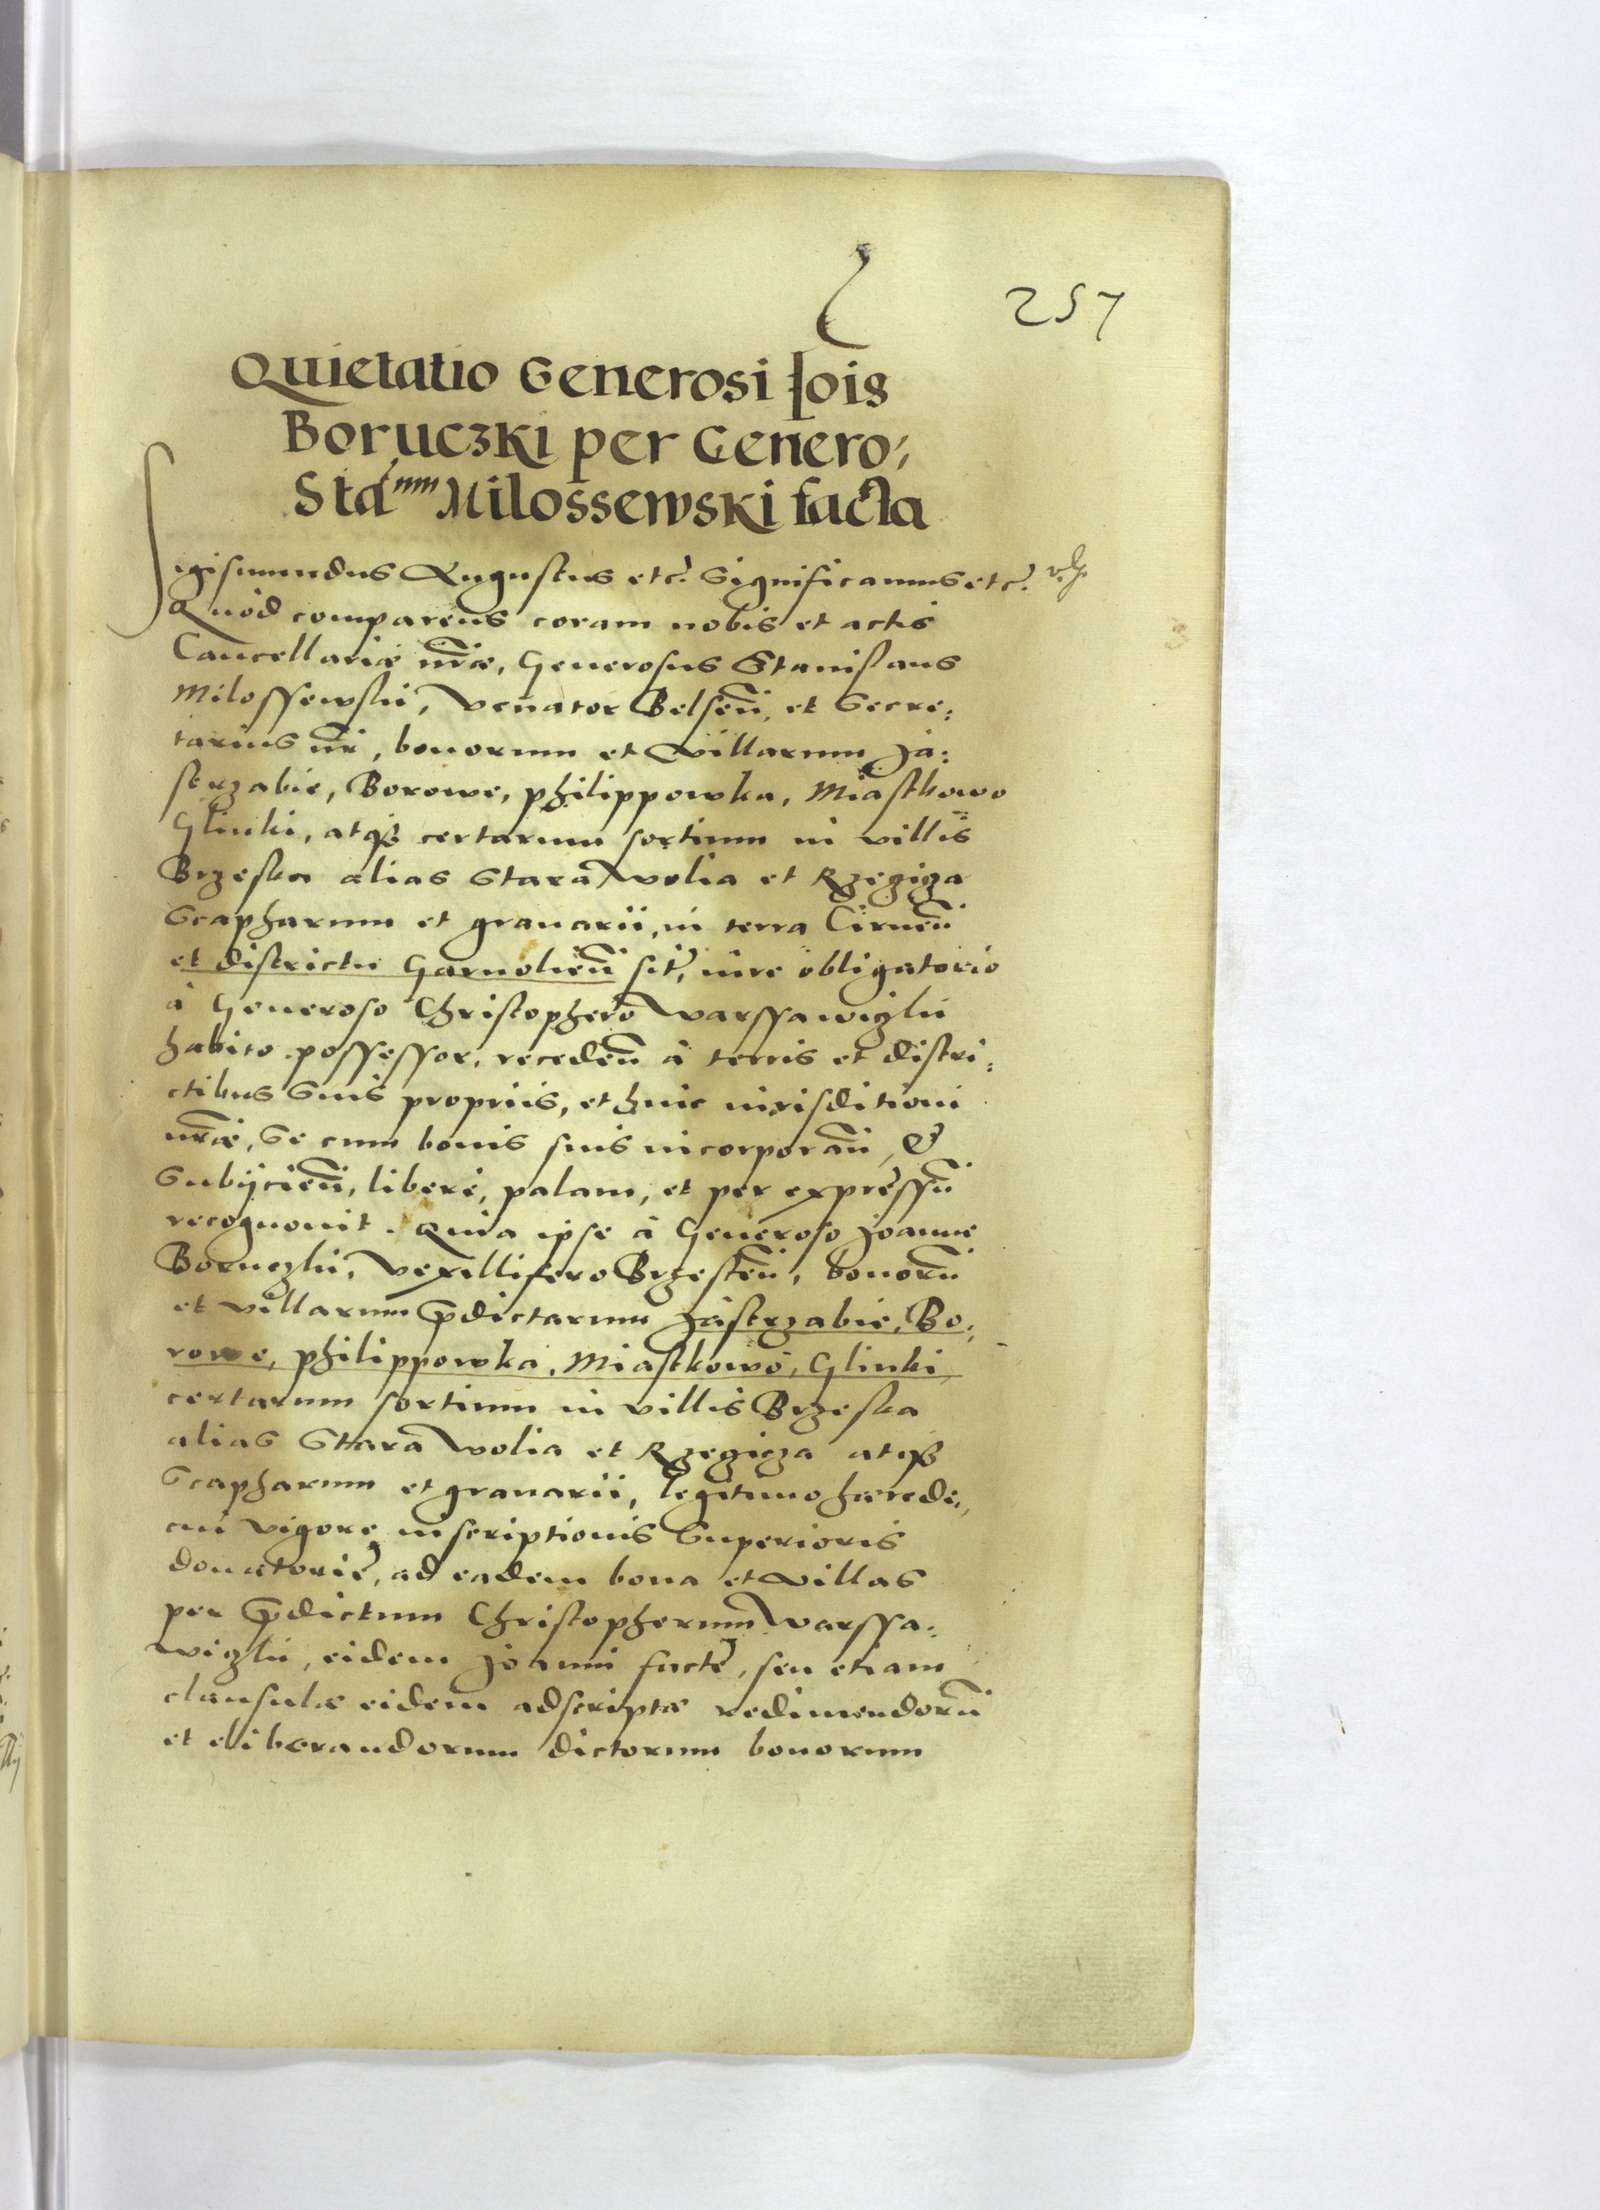 257
Quietatio Generosi Iois
Boruczki per Genero,
Sta[um] Milossewski facta
Sigismundus Augustus etc. Significamus etc.
Quòd comparens coram nobis et actis
Cancellariæ nr̃æ, Generosus Stanislaus
Milossewski, Venator Belseñ, et Secre:
tarius nr̃, bonorum et villarum Ja:
strzabie, Borowe, Philippowka, Miastkowo
Glinki, atq3 certarum sortium in villis
Brzeska alias Stara Wolia et Rzeczicza
Scapharum et granarii, in terra Cirneñ
et districtu Garwolieñ sit, iure obligatorio
à Generoso Christophero Warssawiczki
habito possessor, recedeñ à terris et distri:
ctibus suis propriis, et huic iurisditioni
nr̃æ, se cum bonis suis incorporañ, &
subijcieñ, liberè, palam, et per expressũ
recognovit. Quia ipse à Generoso Joanne
Boruczki, Vexillifero Brzesteñ, bonorũ
et villarum p̃dictarum Jastrzabie, Bo:
rowe, Philippowka, Miastkowo, Glinki,
certarum sortium in villis Brzeska
alias Stara Wolia et Rzeczicza atq3
Scapharum et granarii, legitimo hærede,
cui vigore inscriptionis superioris
donatorię, ad eadem bona et villas
per p̃dictum Christopherum Warssa:
wiczki, eidem Joanni factę, seu etiam
clausulæ eidem adscriptæ redimendorũ
et eliberandorum dictorum bonorum